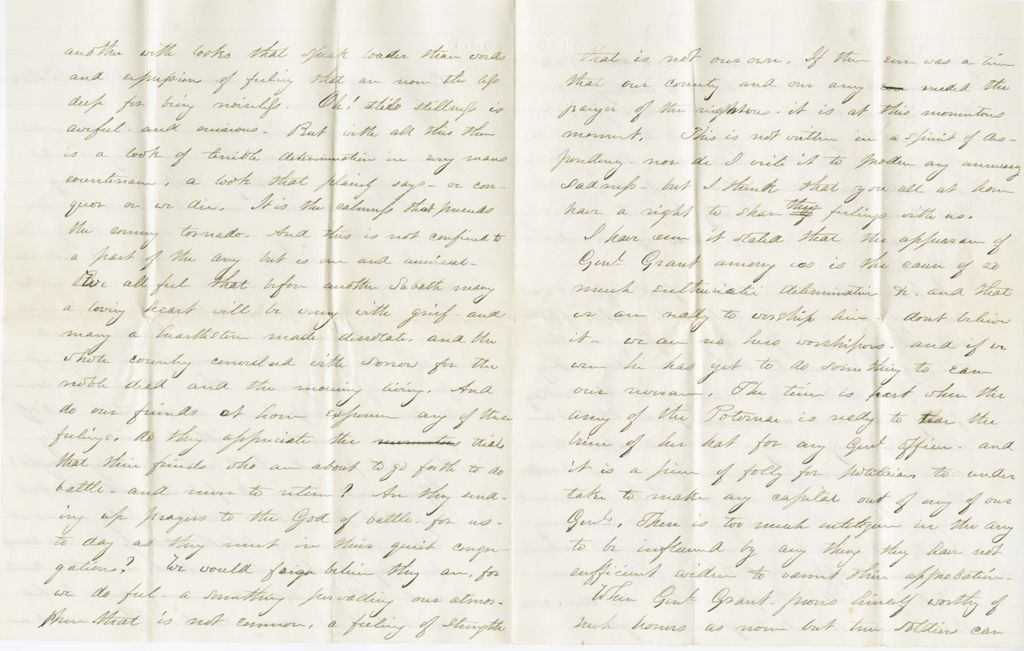 another with looks that speak louder than words
and expression of feeling that are none the less
deep for being noiseless. Oh! this stillness is
awful and anxious. But with all this there
is a look of terrible determination in every mans
countenance, a look that plainly says - we con-
quer or we die. It is the calmness that precedes
the coming tornado. And this is not confined to
a part of the army but is one and universal.
We all feel that before another Sabbath many
a loving heart will be wrung with grief and
many a hearthstone made desolate, and the
whole country convulsed with sorrow for the
noble dead and the mourning living. And
do our friends at home experience any of these
feelings. do they appreciate the trials
that their friends who are about to go forth to do
battle - and never to return? Are they send-
ing up prayers to the God of battle for us -
to day as they meet in their quiet congre-
gations? We would faign believe they are, for
we do feel - a something pervading our atmos-
phere that is not common, a feeling of strength
that is not our own. If there ever was a time
that our county and our army needed the
prayer of the righteous - it is at this momentous
moment. This is not written in a spirit of des-
pondency - nor do I write it to produce any unnecessary
sadness - but I think that you all at home
have a right to share these feelings with us.
I have seen it stated that the appearance of
Genl. Grant among us is the cause of so
much enthusiastic determination &c. and that
we are ready to worship him - dont believe
it - we are no hero worshipers. and if we
were he has yet to do something to earn
our reverence. The time is past when the
army of the Potomac is ready to tear the
linen of her hat for any Genl. officer - and
it is a piece of folly for politicians to under
take to make any capital out of any of our
Genls. There is too much inteligence in the army
to be influenced by any thing they have not
sufficient evidence to warrant their approbation -
When Genl. Grant proves himself worthy of
such honors as none but true soldiers can